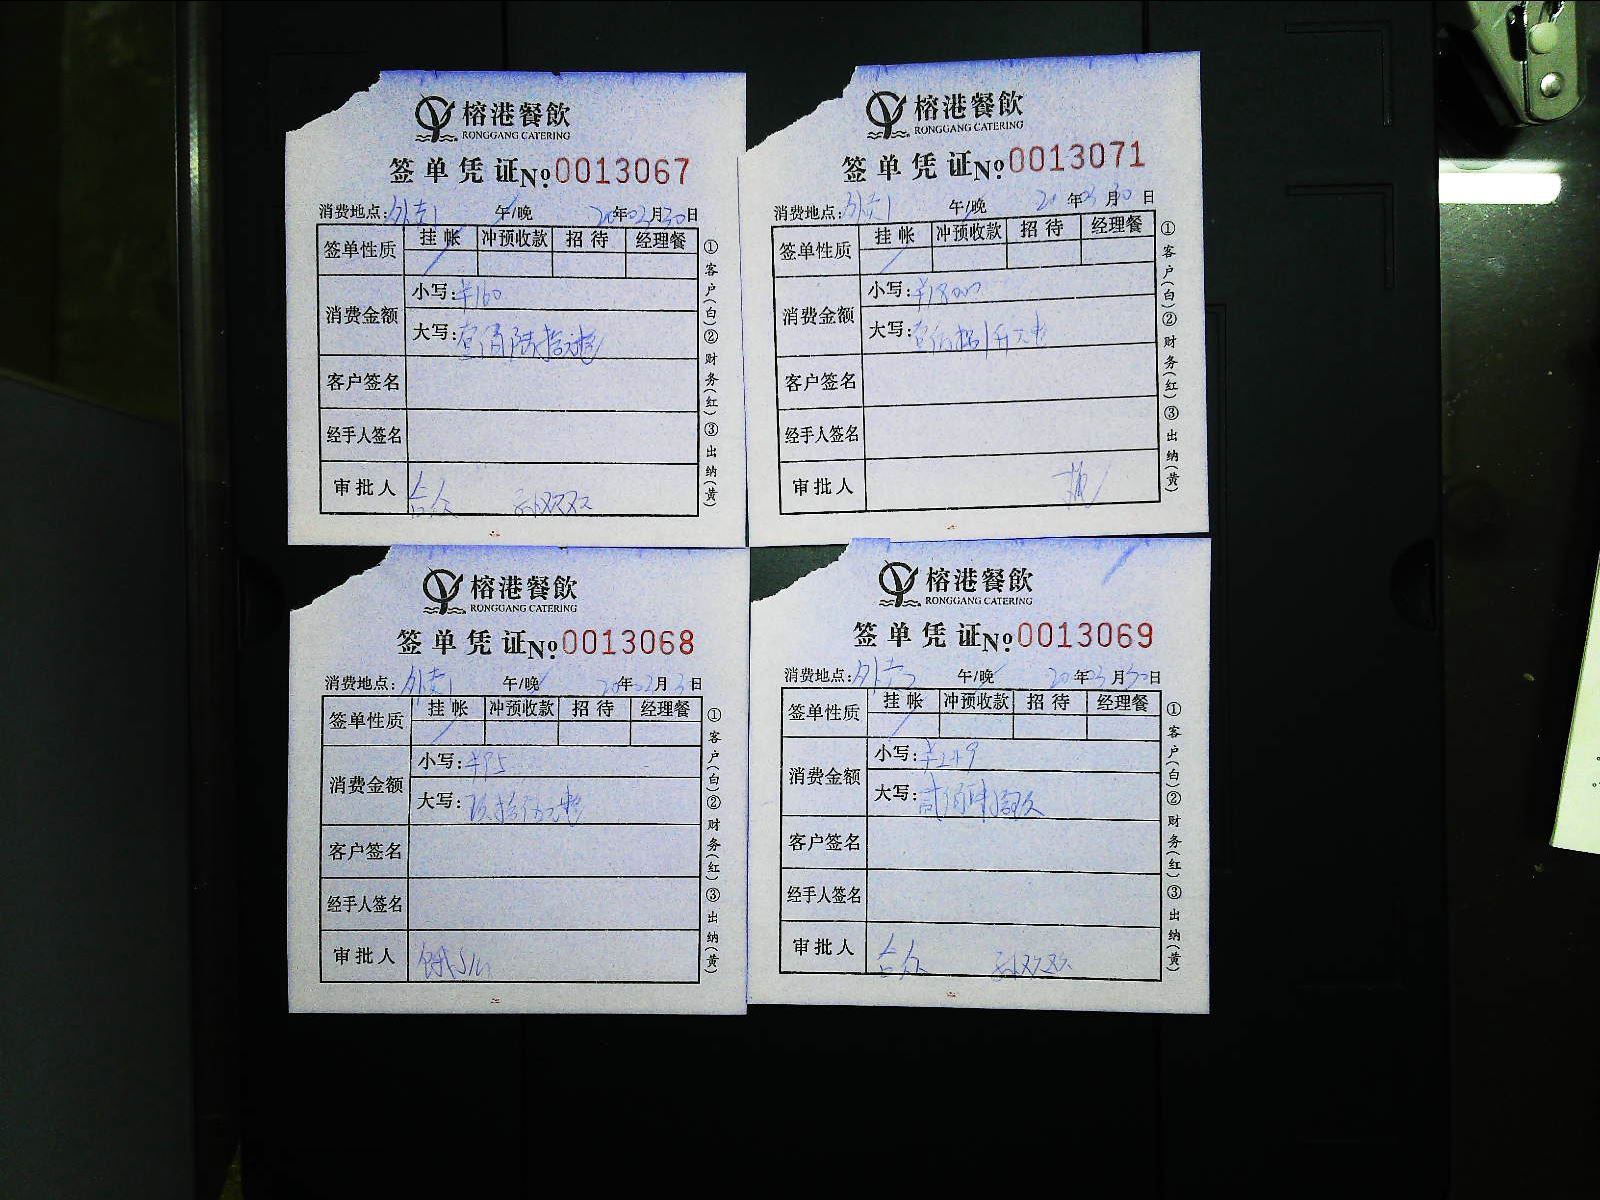 榕港餐飲
RONGGANG CATERING
签单凭证№0013067
消费地点:外卖1 午/晚 20年03月30日
签单性质 挂帐 冲预收款 招待 经理餐
消费金额 小写:¥160
大写:壹佰陆拾元整
客户签名
经手人签名
审批人 合众 孙双双
①客户(白)②财务(红)③出纳(黄)
榕港餐飲
RONGGANG CATERING
签单凭证№0013071
消费地点:外卖1 午/晚 20年03月30日
签单性质 挂帐 冲预收款 招待 经理餐
消费金额 小写:
大写:
客户签名
经手人签名
审批人
①客户(白)②财务(红)③出纳(黄)
榕港餐飲
RONGGANG CATERING
签单凭证№0013068
消费地点:外卖1 午/晚 20年03月日
签单性质 挂帐 冲预收款 招待 经理餐
消费金额 小写:¥95
大写:玖拾伍元整
客户签名
经手人签名
审批人
①客户(白)②财务(红)③出纳(黄)
榕港餐飲
RONGGANG CATERING
签单凭证№0013069
消费地点:外卖 午/晚 20年03月30日
签单性质 挂帐 冲预收款 招待 经理餐
消费金额 小写:¥249
大写:
客户签名
经手人签名
审批人 合众 孙双双
①客户(白)②财务(红)③出纳(黄)